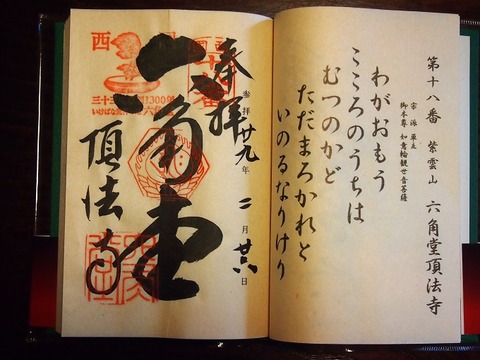 第十八番 紫雲山 六角堂頂法寺
宗派 単立
御本尊 如意輪観世音菩薩
わがおもう
こころのうちは
むつのかど
ただまろかれと
いのるなりけり
奉拝
参拝廿九年二月廿六日
六角堂
頂法寺
西国
十八番
三十三所
1300年
いけばな
六角堂